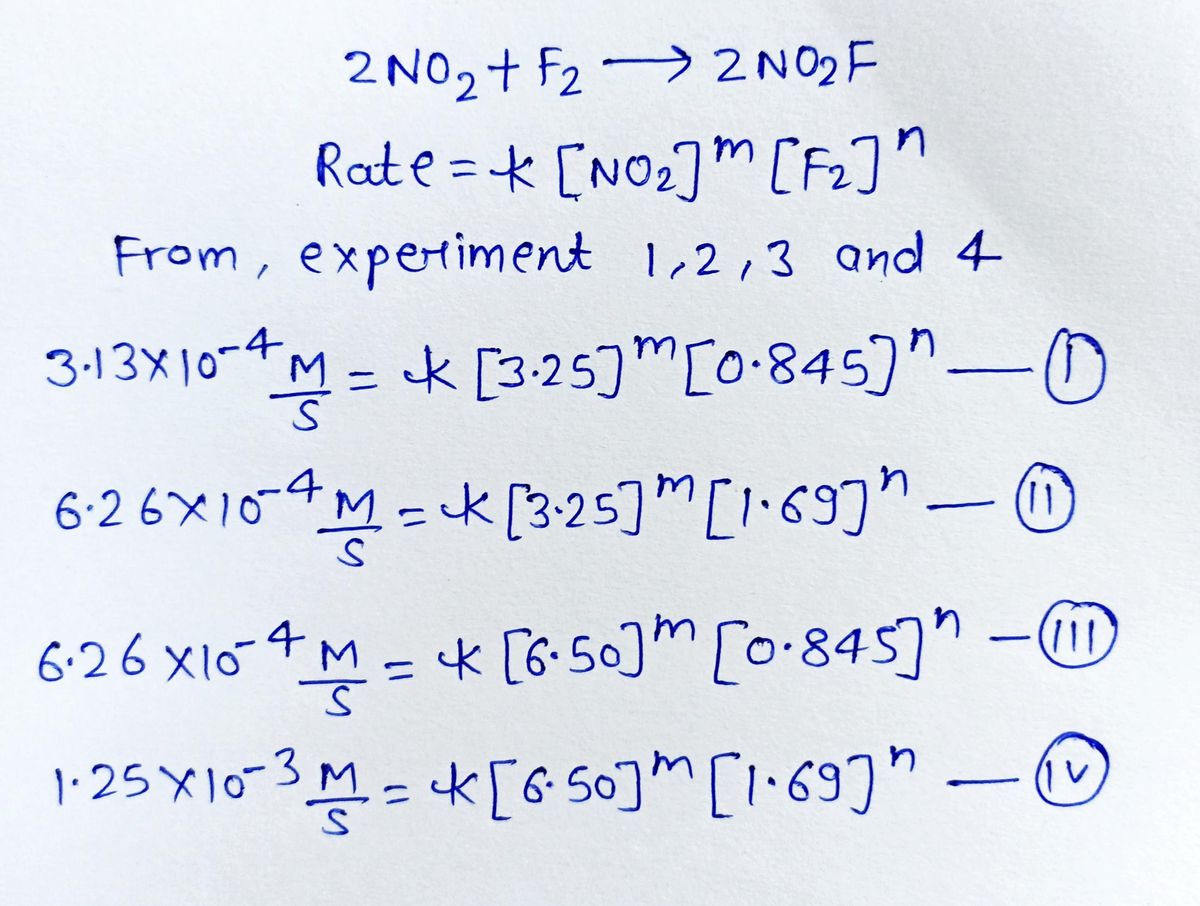 2NO₂ + F₂ ⟶ 2NO₂F
Rate = k [NO₂]ᵐ [F₂]ⁿ
From, experiment 1,2,3 and 4
3.13×10⁻⁴ M/S = k [3.25]ᵐ [0.845]ⁿ — Ⓘ
6.26×10⁻⁴ M/S = k [3.25]ᵐ [1.69]ⁿ — (II)
6.26×10⁻⁴ M/S = k [6.50]ᵐ [0.845]ⁿ — (III)
1.25×10⁻³ M/S = k [6.50]ᵐ [1.69]ⁿ — (IV)